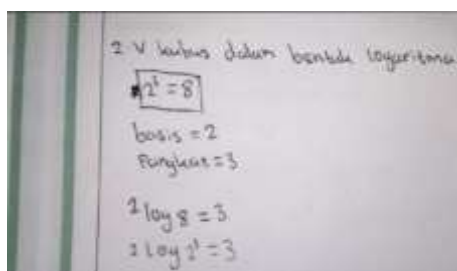 2 V kubus dalam bentuk logaritma
2³ = 8
basis = 2
Pangkat = 3
²log 8 = 3
²log 2³ = 3